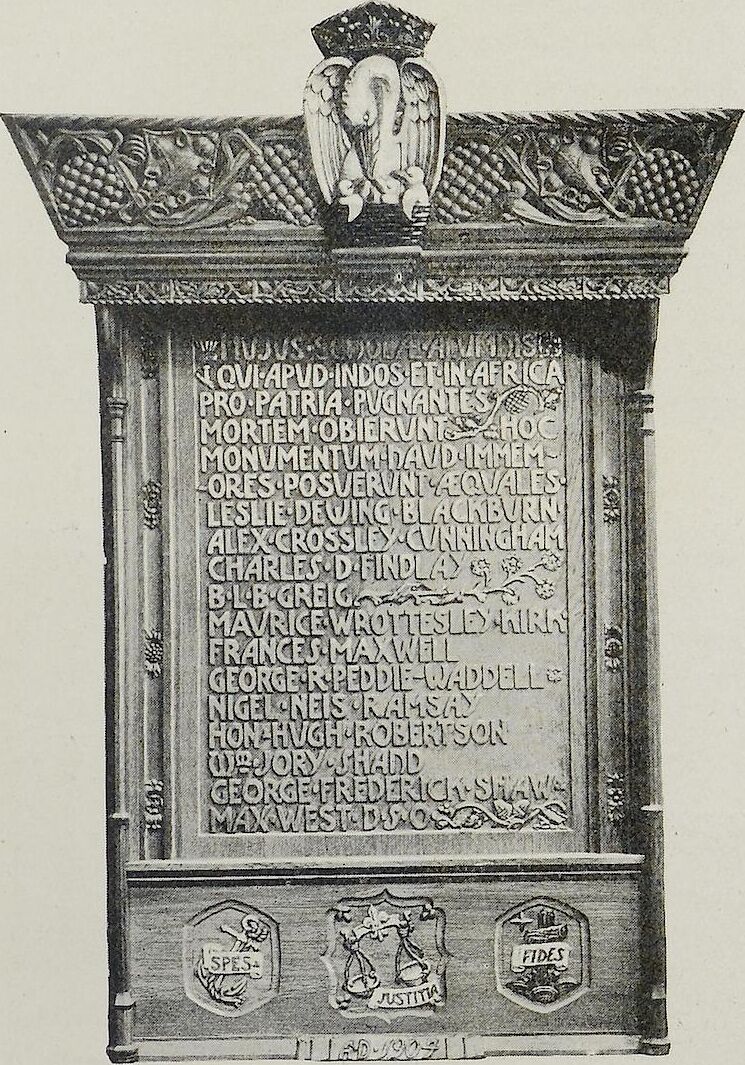 HUJUS·SCHOLÆ·ALUMNIS
QUI·APUD·INDOS·ET·IN·AFRICA
PRO·PATRIA·PUGNANTES
MORTEM·OBIERUNT·HOC
MONUMENTUM·HAUD·IMMEM-
ORES·POSUERUNT·ÆQUALES·
LESLIE·DEWING·BLACKBURN·
ALEX·CROSSLEY·CUNNINGHAM
CHARLES·D·FINDLAY
B·L·B·GREIG
MAURICE·WROTTESLEY·KIRK
FRANCES·MAXWELL
GEORGE·R·PEDDIE-WADDELL
NIGEL·NEIS·RAMSAY
HON·HUGH·ROBERTSON
WM·JORY·SHAND
GEORGE·FREDERICK·SHAW
MAX·WEST·D·S·O
SPES
JUSTITIA
FIDES
AD·1904